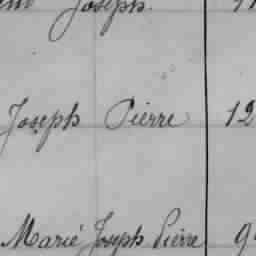 Joseph.
Joseph Pierre 12
Marié Joseph Pierre 9